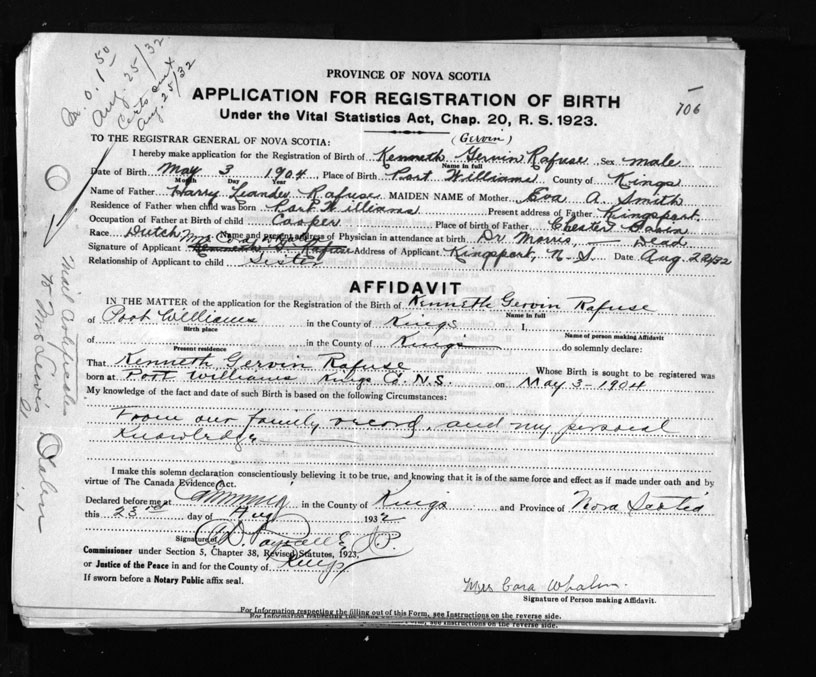 M.O. 1 50
Aug. 25/32
Certs out
Aug. 25/32
706
PROVINCE OF NOVA SCOTIA
APPLICATION FOR REGISTRATION OF BIRTH
Under the Vital Statistics Act, Chap. 20, R. S. 1923.
TO THE REGISTRAR GENERAL OF NOVA SCOTIA: (Gervin)
I hereby make application for the Registration of Birth of Kenneth Gervin Rafuse Sex male
Name in full
Date of Birth May 3 1904 Place of Birth Port Williams County of Kings
Month Day Year
Name of Father Harry Leander Rafuse MAIDEN NAME of Mother Eva A Smith
Residence of Father when child was Born Port Williams Present address of Father Kingsport
Occupation of Father at Birth of child Cooper Place of birth of Father Chester Basin
Race Dutch Name and present address of Physician in attendance at birth Dr Morris, — Dead
Signature of Applicant Kenneth Rafuse Address of Applicant Kingsport, N.S. Date Aug. 22/32
Relationship of Applicant to child Sister
AFFIDAVIT
IN THE MATTER of the application for the Registration of the Birth of Kenneth Gervin Rafuse
Name in full
of Port Williams in the County of Kings I,
Birth place Name of person making Affidavit
of in the County of Kings do solemnly declare:
Present residence
That Kenneth Gervin Rafuse Whose Birth is sought to be registered was
born at Port Williams Kings Co. N.S. on May 3 - 1904
My knowledge of the fact and date of such Birth is based on the following Circumstances:
From our family record, and my personal
Knowledge
I make this solemn declaration conscientiously believing it to be true, and knowing that it is of the same force and effect as if made under oath and by
virtue of The Canada Evidence Act.
Declared before me at in the County of Kings and Province of Nova Scotia
this 23rd day of Aug 1932
Signature of J.P.
Commissioner under Section 5, Chapter 38, Revised Statutes, 1923,
or Justice of the Peace in and for the County of Kings
If sworn before a Notary Public affix seal.
Mrs Cora Whalen
Signature of Person making Affidavit.
For Information respecting the filling out of this Form, see Instructions on the reverse side.
Mail Certificate
to Mrs Lewis
Whalen